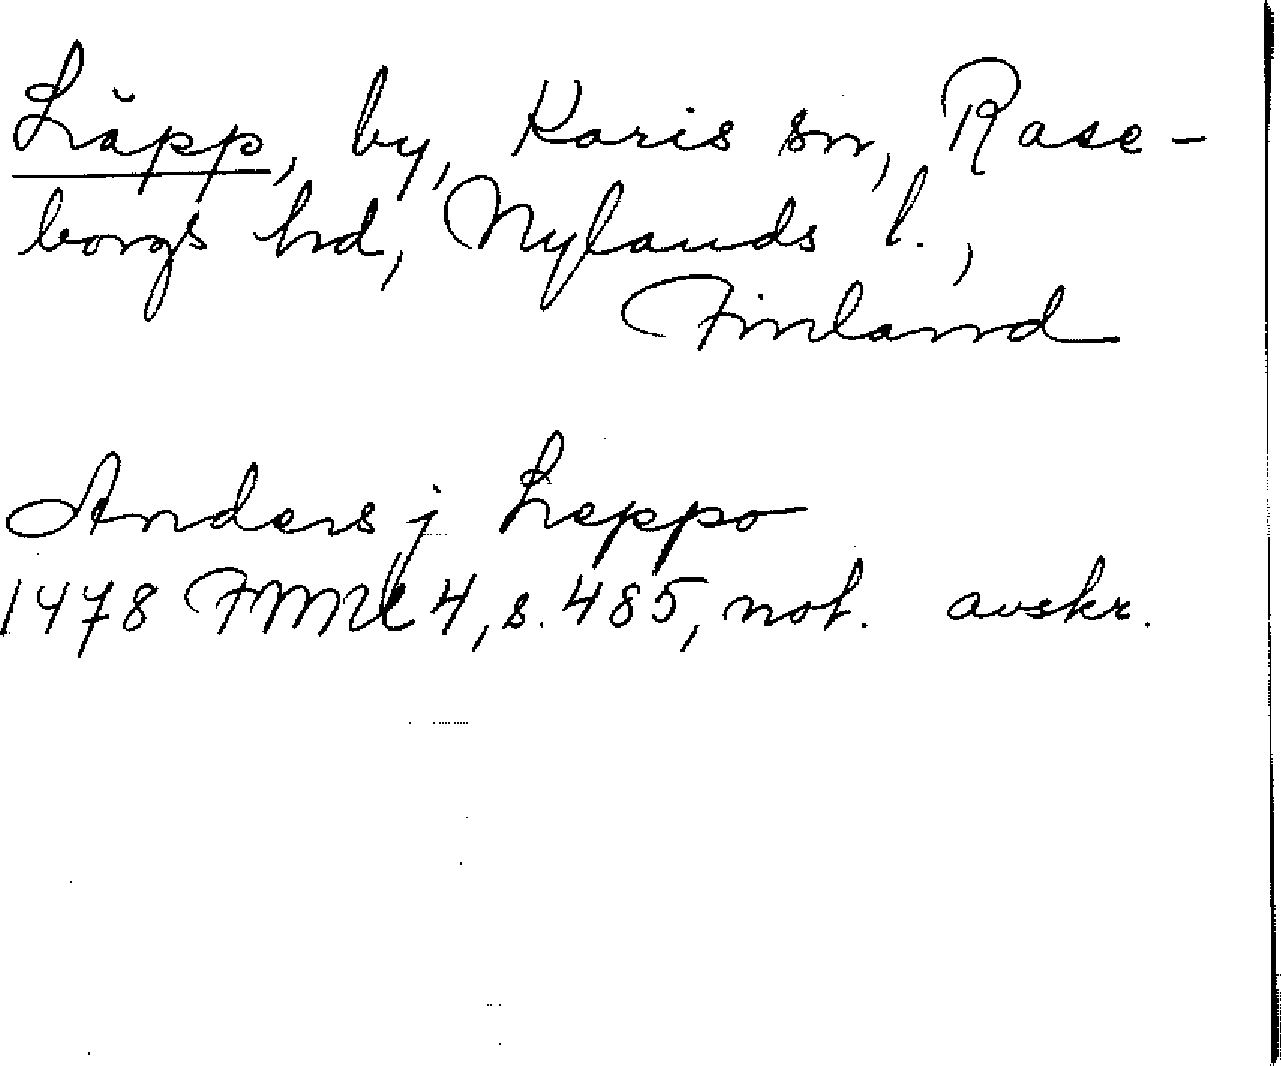 Läpp, by, Karis sn, Rase-
borgs hd, Nylands l.,
Finland
Anders j Leppo
1478 FMU 4, s. 485, not. avskr.